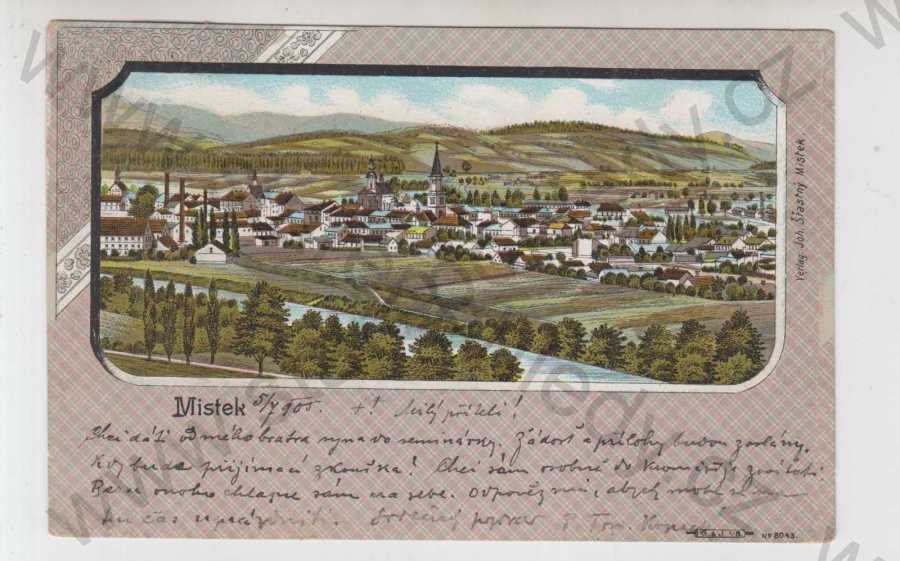 Verlag: Joh. Šťastný Mistek
Mistek 5/7 905. +! Milý příteli!
Chci dáti od mého bratra syna do semináře. Žádost a přílohy budou zaslány.
Kdy bude přijímací zkouška? Chci sám osobně do Kroměříže
sám na sebe. Odpověz mi, abych mohl si
čas uprázdniti. Srdečný pozdrav P. Tom.
No 8043.